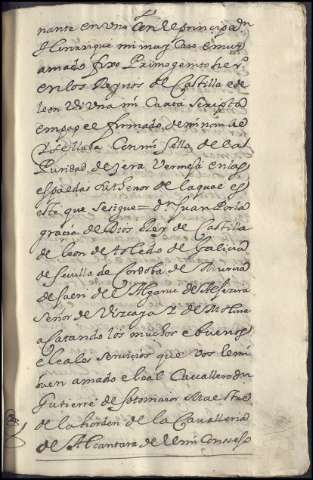 nante en uno con el prinçipe dn
Enrrique mi muy caro e muy
amado fixo Primogenito her.o
en los Reynos de Castilla e de
leon vi una mi carta scripta
en papel firmado de mi nombre
y sellada con mi sello de la
Puridad de zera vermeja en las
espaldas su thenor de la qual es
este que se sigue = Dn Juan por la
graçia de Dios Rey de Castilla
de leon de toledo de Galiçia
de Sevilla de Cordova de Murçia
de Jaen del Algarve de Alxeçira
señor de Vizcaya e de Molina
acatando los muchos e buenos
e leales serviçios que vos el mi
bien amado e leal Cavallero dn
Gutierre de sotomaior Maestre
de la horden de la Cavalleria
de Alcantara del mi Consejo